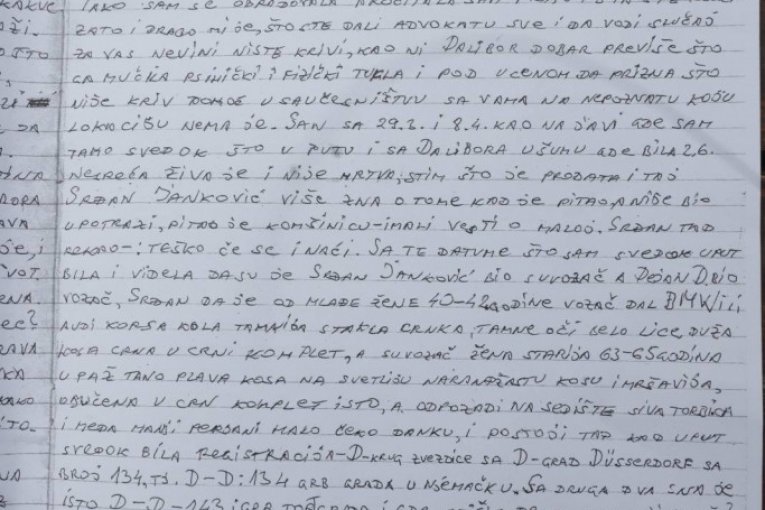 KAKVE IAKO SAM SE OBRADOVALA PROČITALA SAM
ŽI. ZATO I DRAGO MI JE, ŠTO STE DALI ADVOKATU SVE I DA VODI SLUČAJ
OTTO ZA VAS NEVINI NISTE KRIVI, KAO NI DALIBOR DOBAR PREVIŠE ŠTO
GA MUČKA PSIHIČKI I FIZIČKI TUKLA I POD UCENOM DA PRIZNA ŠTO
NIJE KRIV TOME U SAUČESNIŠTVU SA VAMA NA NEPOZNATU KOJU
DA LOKACIJU NEMA JE. SAN SA 29.3. I 8.4. KAO NA JAVI GDE SAM
TAMO SVEDOK ŠTO U PUTU I SA DALIBORA U ŠUMU GDE BILA 2,6.
NESREĆA ŽIVA JE I NIJE MRTVA, S TIM ŠTO JE PRODATA I TAJ
BORA SRĐAN JANKOVIĆ VIŠE ZNA O TOME KAD JE PITAO, A NIJE BIO
AVA U POTRAZI, PITAO JE KOMŠINICU-IMALI VESTI O MALOJ. SRĐAN TAD
JE, I REKAO-: TEŠKO ĆE SE I NAĆI. SA TE DATUME ŠTO SAM SVEDOK UPUT
VOT. BILA I VIDELA DA SU JE SRĐAN JANKOVIĆ BIO SUVOZAČ A DEJAN D. BIO
ENA. VOZAČ, SRĐAN DA JE OD MLAĐE ŽENE 40-42 GODINE VOZAČ DAL BMW ILI
EC? AUDI KORSA KOLA TAMNIJA STAKLA CRNKA, TAMNE OČI BELO LICE, DUŽA
RAVA KOSA CRNA U CRNI KOMPLET, A SUVOZAČ ŽENA STARIJA 63-65 GODINA
KA UPAŽ TANO PLAVA KOSA NA SVETLIJU NARANĐASTU KOSU I MRŠAVIJA,
KAKO OBUČENA U CRN KOMPLET ISTO, A ODPOZADI NA SEDIŠTE SIVA TORBICA
ITO. I MEDA MANJI PERSANI MALO ĆEBO DANKU, I POSTOJI TAD KAO UPUT
SVEDOK BILA REGISTRACIJA-D-KRUG ZVEZDICE SA D-GRAD DÜSSERDORF SA
NA BROJ 134, TJ. D-D:134 GRB GRADA U NJEMAČKU. SA DRUGA DVA SNA JE
ISTO D-D-143 IGRA